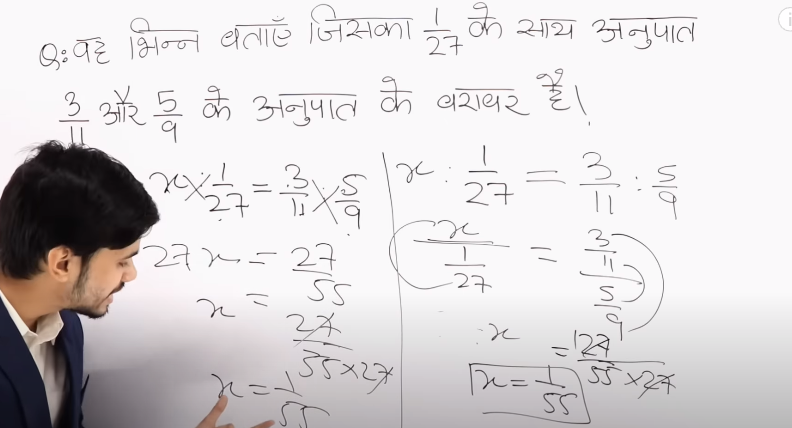 Q: वह भिन्न बताएँ जिसका 1/27 के साथ अनुपात
3/11 और 5/9 के अनुपात के बराबर है।
x × 1/27 = 3/11 × 5/9
27x = 27/55
x = 27/(55×27)
x = 1/55
x : 1/27 = 3/11 : 5/9
x/(1/27) = (3/11)/(5/9)
x = 27/(55×27)
x = 1/55